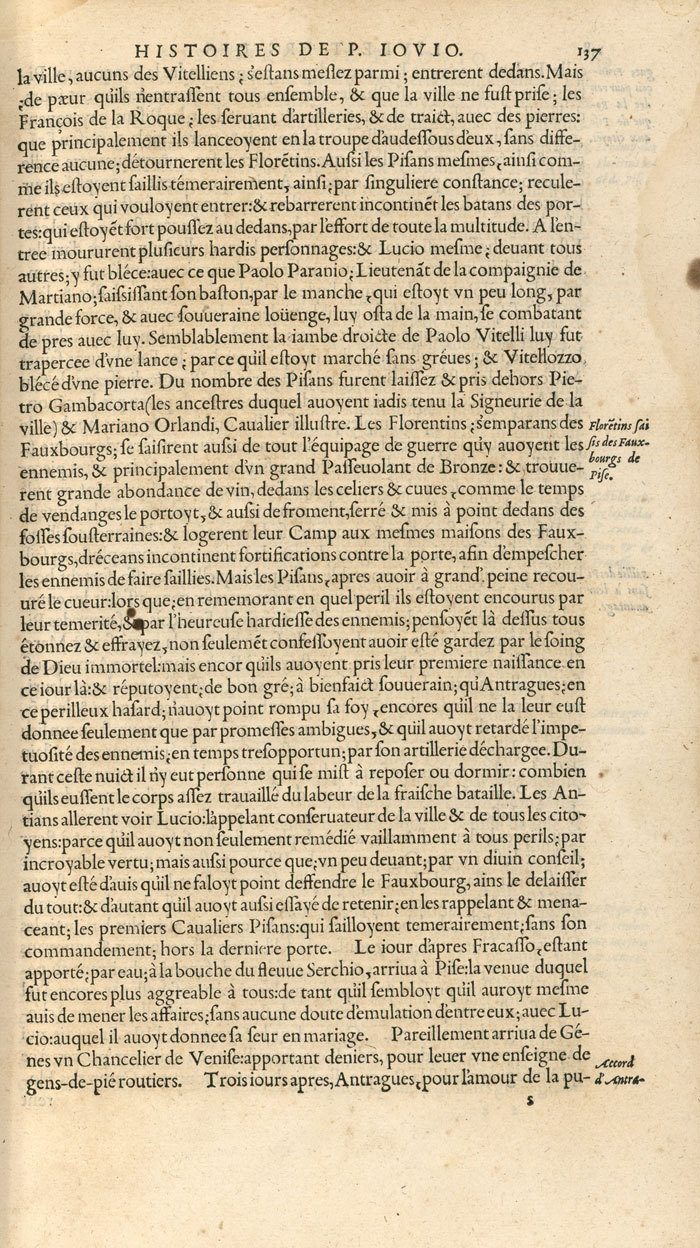 HISTOIRES DE P. IOVIO. 137
la ville, aucuns des Vitelliens ; s'eſtans meſlez parmi ; entrerent dedans. Mais
;de pœur qu'ils n'entraſſent tous enſemble, & que la ville ne fuſt priſe ; les
François de la Roque ; les ſeruant d'artilleries, & de traict, auec des pierres:
que principalement ils lanceoyent en la troupe d'audeſſous d'eux, ſans diffe-
rence aucune; détournerent les Florẽtins. Auſsi les Piſans meſmes, ainſi com-
me ils eſtoyent ſaillis témerairement, ainſi; par ſinguliere conſtance; recule-
rent ceux qui vouloyent entrer:& rebarrerent incontinẽt les batans des por-
tes:qui eſtoyẽt fort pouſſez au dedans, par l'effort de toute la multitude. A l'en-
tree moururent pluſieurs hardis perſonnages:& Lucio meſme ; deuant tous
autres; y fut blécé:auec ce que Paolo Paranio; Lieutenãt de la compaignie de
Martiano; ſaiſiſſant ſon baſton, par le manche, qui eſtoyt vn peu long, par
grande force, & auec ſouueraine loüenge, luy oſta de la main, ſe combatant
de pres auec luy. Semblablement la iambe droicte de Paolo Vitelli luy fut
trapercee d'vne lance ; par ce qu'il eſtoyt marché ſans gréues ; & Vitellozzo
blécé d'vne pierre. Du nombre des Piſans furent laiſſez & pris dehors Pie-
tro Gambacorta(les anceſtres duquel auoyent iadis tenu la Signeurie de la
ville) & Mariano Orlandi, Caualier illuſtre. Les Florentins ; s'emparans des
Fauxbourgs; ſe ſaiſirent auſsi de tout l'équipage de guerre qu'y auoyent les
ennemis, & principalement d'vn grand Paſſeuolant de Bronze: & trouue-
rent grande abondance de vin, dedans les celiers & cuues, comme le temps
de vendanges le portoyt, & auſsi de froment, ſerré & mis à point dedans des
foſſes ſouſterraines:& logerent leur Camp aux meſmes maiſons des Faux-
bourgs, dréceans incontinent fortifications contre la porte, afin d'empeſcher
les ennemis de faire ſaillies. Mais les Piſans, apres auoir à grand' peine recou-
uré le cueur:lors que; en rememorant en quel peril ils eſtoyent encourus par
leur temerité, & par l'heureuſe hardieſſe des ennemis; penſoyẽt là deſſus tous
êtonnez & effrayez, non ſeulemẽt confeſſoyent auoir eſté gardez par le ſoing
de Dieu immortel:mais encor qu'ils auoyent pris leur premiere naiſſance en
ce iour là:& réputoyent; de bon gré; à bienfaict ſouuerain; qu'Antragues; en
ce perilleux haſard; n'auoyt point rompu ſa foy, encores qu'il ne la leur euſt
donnee ſeulement que par promeſſes ambigues, & qu'il auoyt retardé l'impe-
tuoſité des ennemis; en temps treſopportun; par ſon artillerie déchargee. Du-
rant ceſte nuict il n'y eut perſonne qui ſe miſt à repoſer ou dormir : combien
qu'ils euſſent le corps aſſez trauaillé du labeur de la fraiſche bataille. Les An-
tians allerent voir Lucio:l'appelant conſeruateur de la ville & de tous les cito-
yens:parce qu'il auoyt non ſeulement remédié vaillamment à tous perils; par
incroyable vertu; mais auſsi pource que; vn peu deuant; par vn diuin conſeil;
auoyt eſté d'auis qu'il ne faloyt point deffendre le Fauxbourg, ains le delaiſſer
du tout:& d'autant qu'il auoyt auſsi eſſayé de retenir; en les rappelant & mena-
ceant; les premiers Caualiers Piſans:qui ſailloyent temerairement; ſans ſon
commandement; hors la derniere porte. Le iour d'apres Fracaſſo, eſtant
apporté; par eau; à la bouche du fleuue Serchio, arriua à Piſe:la venue duquel
fut encores plus aggreable à tous:de tant qu'il ſembloyt qu'il auroyt meſme
auis de mener les affaires; ſans aucune doute d'emulation d'entre eux; auec Lu-
cio:auquel il auoyt donnee ſa ſeur en mariage. Pareillement arriua de Gé-
nes vn Chancelier de Veniſe:apportant deniers, pour leuer vne enſeigne de
gens-de-pié routiers. Trois iours apres, Antragues, pour l'amour de la pu-
s
Florẽtins ſai
ſis des Faux-
bourgs de
Piſe.
Accord
d'Antra-